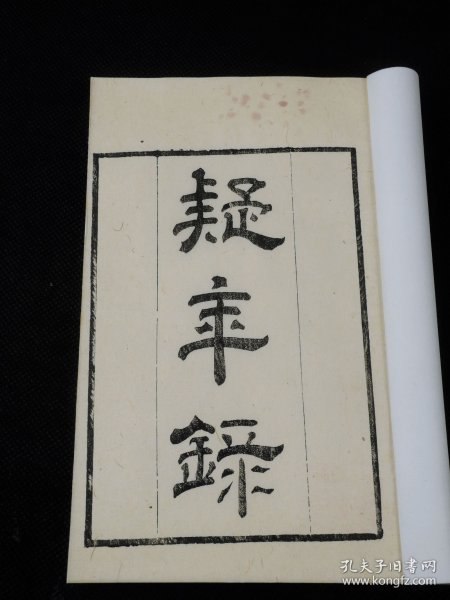 疑年錄
孔夫子旧书网
www.kongfz.com